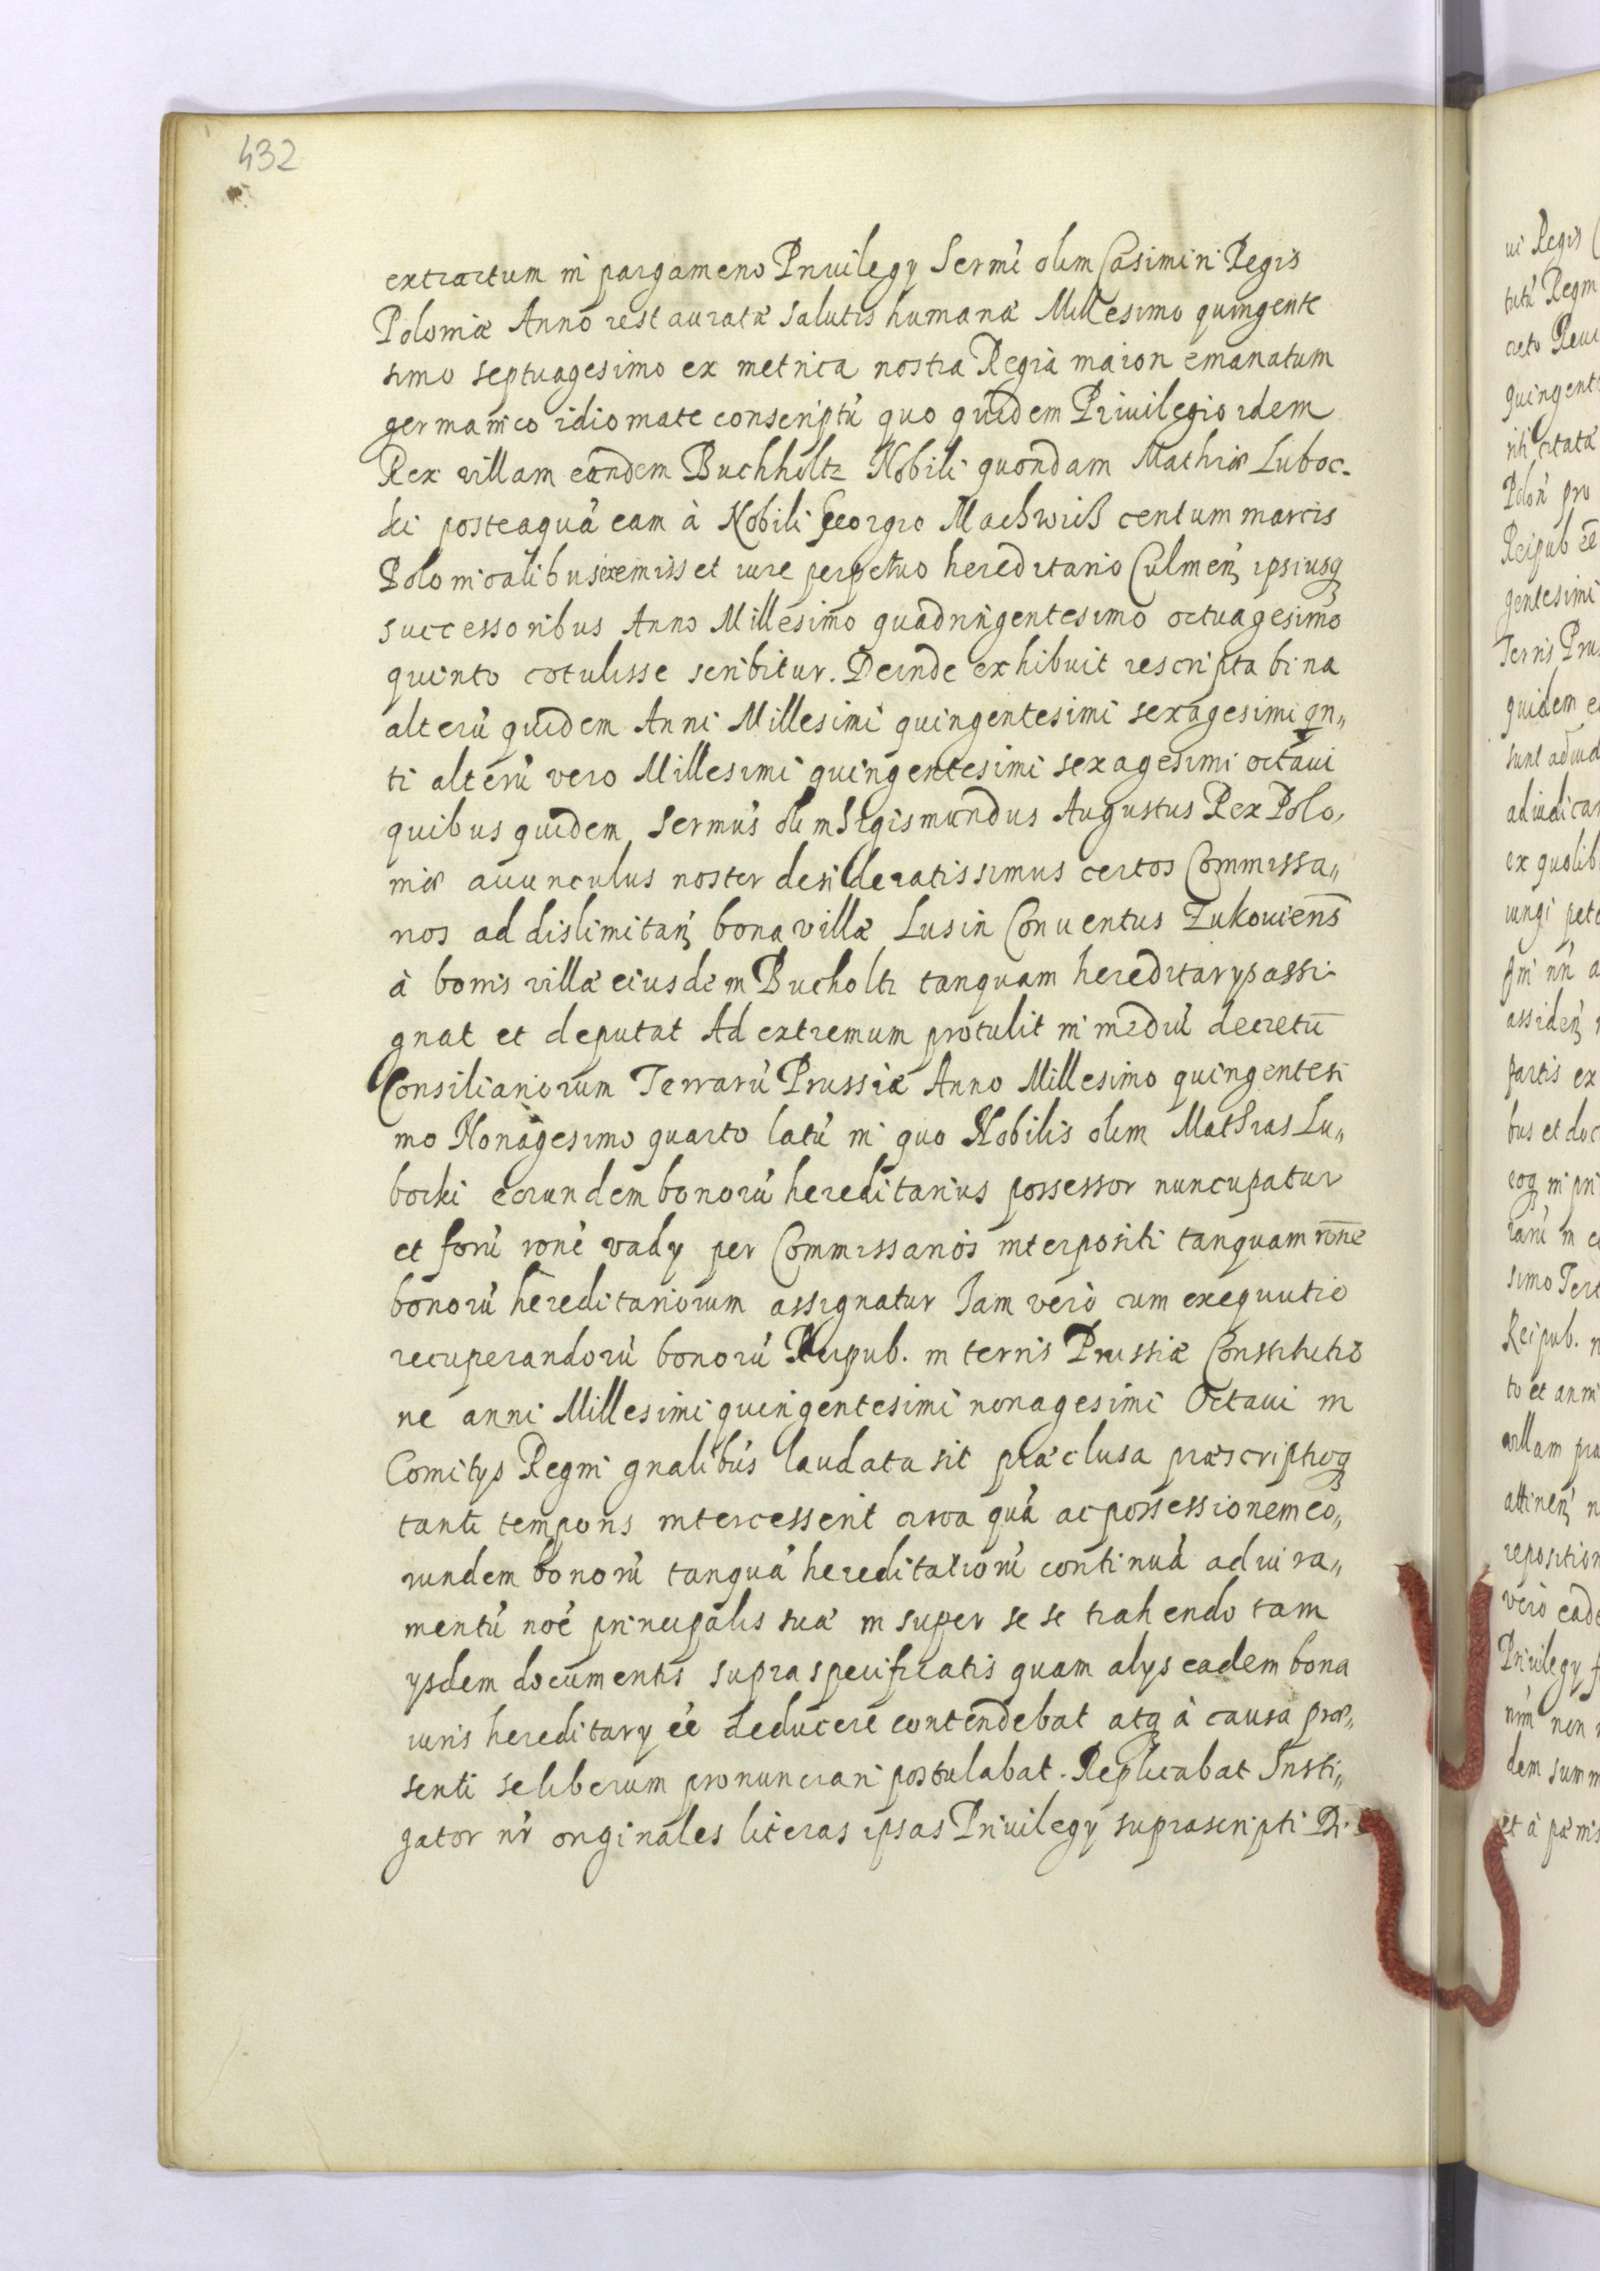 432
extractum in pargameno Priuilegy Sermi olim Casimiri Regis
Poloniæ Anno restauratæ salutis humanæ Millesimo quingente
simo septuagesimo ex metrica nostra Regià maiori emanatum
germanico idiomate conscriptu quo quidem Priuilegio idem
Rex villam eandem Buchholtz Nobili quondam Mathiæ Luboc-
ki posteaquà eam à Nobili Georgio Machwicß centum marcis
Polonicalibus exemisset iure perpetuo hereditario Culmen ipsiusq
successoribus Anno Millesimo quadringentesimo octuagesimo
quinto cotulisse scribitur. Deinde exhibuit rescripta bina
alterù quidem Anni Millesimi quingentesimi sexagesimi qn„
ti alterù vero Millesimi quingentesimi sexagesimi octaui
quibus quidem Sermus olim Sigismundus Augustus Rex Polo,
niæ auunculus noster desideratissimus certos Commissa„
rios ad dislimitan bona villæ Lusin Conuentus Zukouiens
à bonis villæ eiusdem Bucholtz tanquam hereditarys assi-
gnat et deputat Ad extremum protulit in mediù decretū
Consiliariorum Terrarù Prussiæ Anno Millesimo quingentesi
mo Nonagesimo quarto latù in quo Nobilis olim Mathias Lu„
bocki eorundem bonorù hereditarius possessor nuncupatur
et forù rone vady per Commissarios interpositi tanquam rone
bonorù hereditariorum assignatur Iam verò cum exequutio
recuperandorù bonorù Reipub. in terris Prussiæ Constitutio
ne anni Millesimi quingentesimi nonagesimi Octaui in
Comitys Regni gnalibus laudata sit præclusa præscriptioq
tanti temporis intercesserit circa quà ac possessionem eo„
rundem bonorù tanquà hereditariorù continuà ad iura„
mentù noe principalis suæ in super se se trahendo tam
ysdem documentis supra specificatis quam alys eadem bona
iuris hereditary ee deducere contendebat atq à causa præ„
senti se liberum pronunciari postulabat. Replicabat Insti„
gator nr originales literas ipsas Priuilegy suprascripti Di-